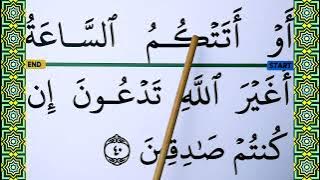 أَوۡ أَتَتۡكُمُ ٱلسَّاعَةُ
END START
أَغَيۡرَ ٱللَّهِ تَدۡعُونَ إِن
كُنتُمۡ صَٰدِقِينَ ٤٠